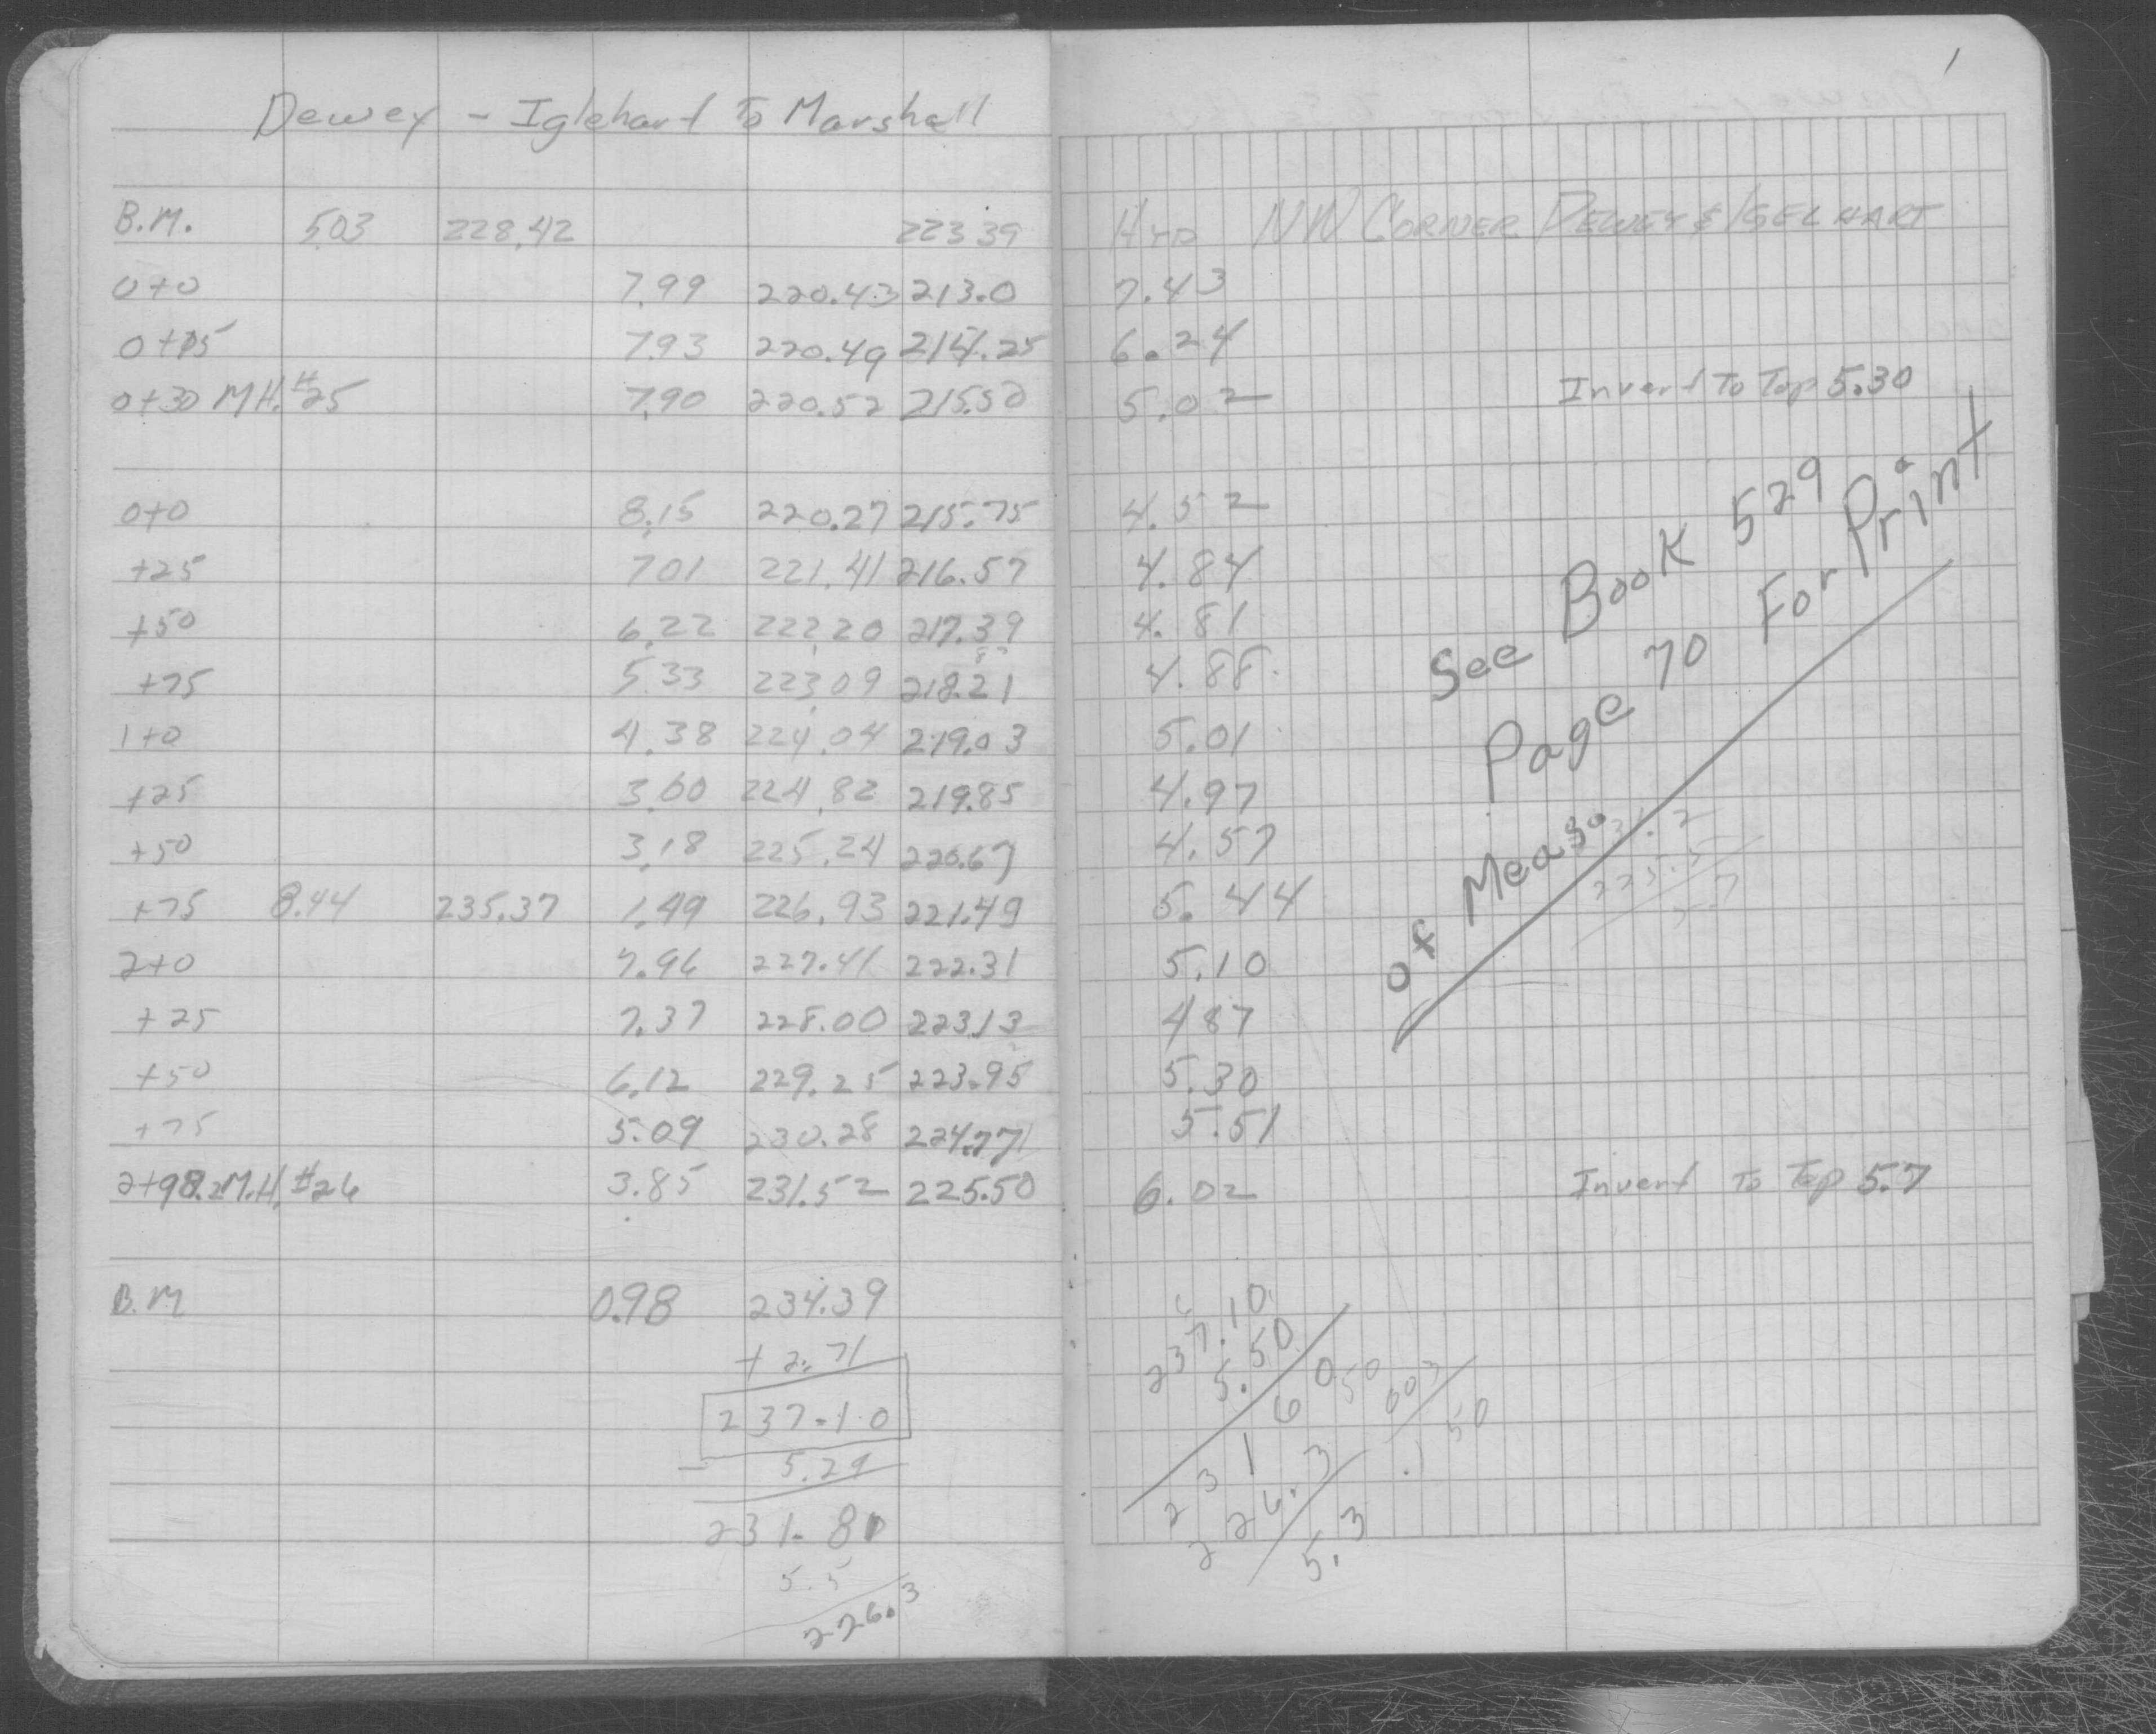 1
Dewey - Iglehart To Marshall
B.M. 5.03 228.42 223.39 Hyd NW CORNER DEWEY & IGELHART
0+0 7.99 220.43 213.0 7.43
0+15 7.93 220.49 214.25 6.24
0+30 M.H. #25 7.90 220.52 215.50 5.02 Invert To Top 5.30
0+0 8.15 220.27 215.75 4.52
+25 7.01 221.41 216.57 4.84
+50 6.22 222.20 217.39 4.81
+75 5.33 223.09 218.21 4.88
1+0 4.38 224.04 219.03 5.01
+25 3.60 224.82 219.85 4.97
+50 3.18 225.24 220.67 4.57
+75 8.44 235.37 1.49 226.93 221.49 5.44
2+0 7.96 227.41 222.31 5.10
+25 7.37 228.00 223.13 4.87
+50 6.12 229.25 223.95 5.30
+75 5.09 230.28 224.77 5.51
2+98.2 M.H. #26 3.85 231.52 225.50 6.02 Invert To Top 5.7
See Book 529
Page 70 For Print
of Meas.
31.2
225.5
5.7
B.M 0.98 234.39
+ 2.71
237.10
- 5.29
231.81
5.5
226.3
237.10
5.50
231.60
226.3
5.3
50
603
.150